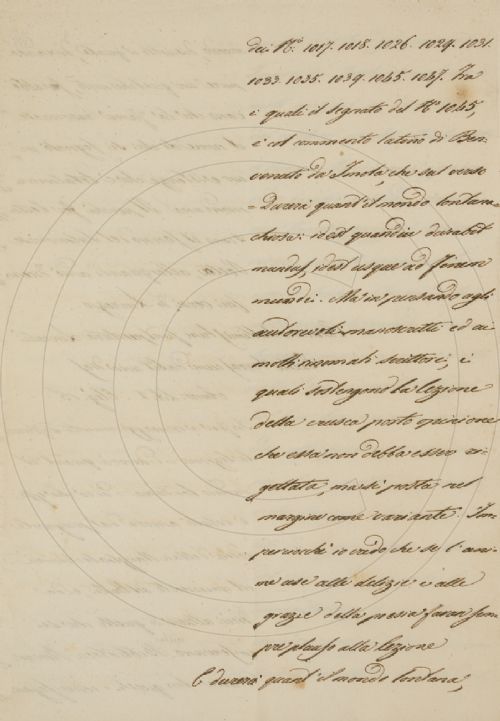 dei Nᵢ 1017. 1018. 1026. 1029. 1031.
1033. 1035. 1039. 1045. 1047. Tra
i quali il segnato del Nº 1045,
è col commento latino di Ben-
venuto da Imola, che sul verso
= Durerà quant'il mondo lontana
chiosa: idest quandiu durabit
mundus, idest usque ad finem
mundi. Ma io pensando agli
autorevoli manoscritti ed ai
molti rinomati scrittori, i
quali sostengono la lezione
della crusca porto opinione
che essa non debba essere ri-
gettata, ma si posta nel
margine come variante. Im-
perciocchè io credo che se l'ani-
me use alle delizie e alle
grazie della poesia faran sem-
pre plauso alla lezione
E durerà quant'il mondo lontana,